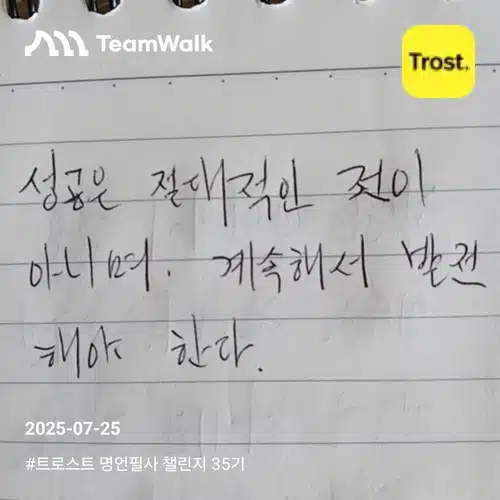 TeamWalk
Trost.
성공은 절대적인 것이
아니며. 계속해서 발전
해야 한다.
2025-07-25
#트로스트 명언필사 챌린지 35기